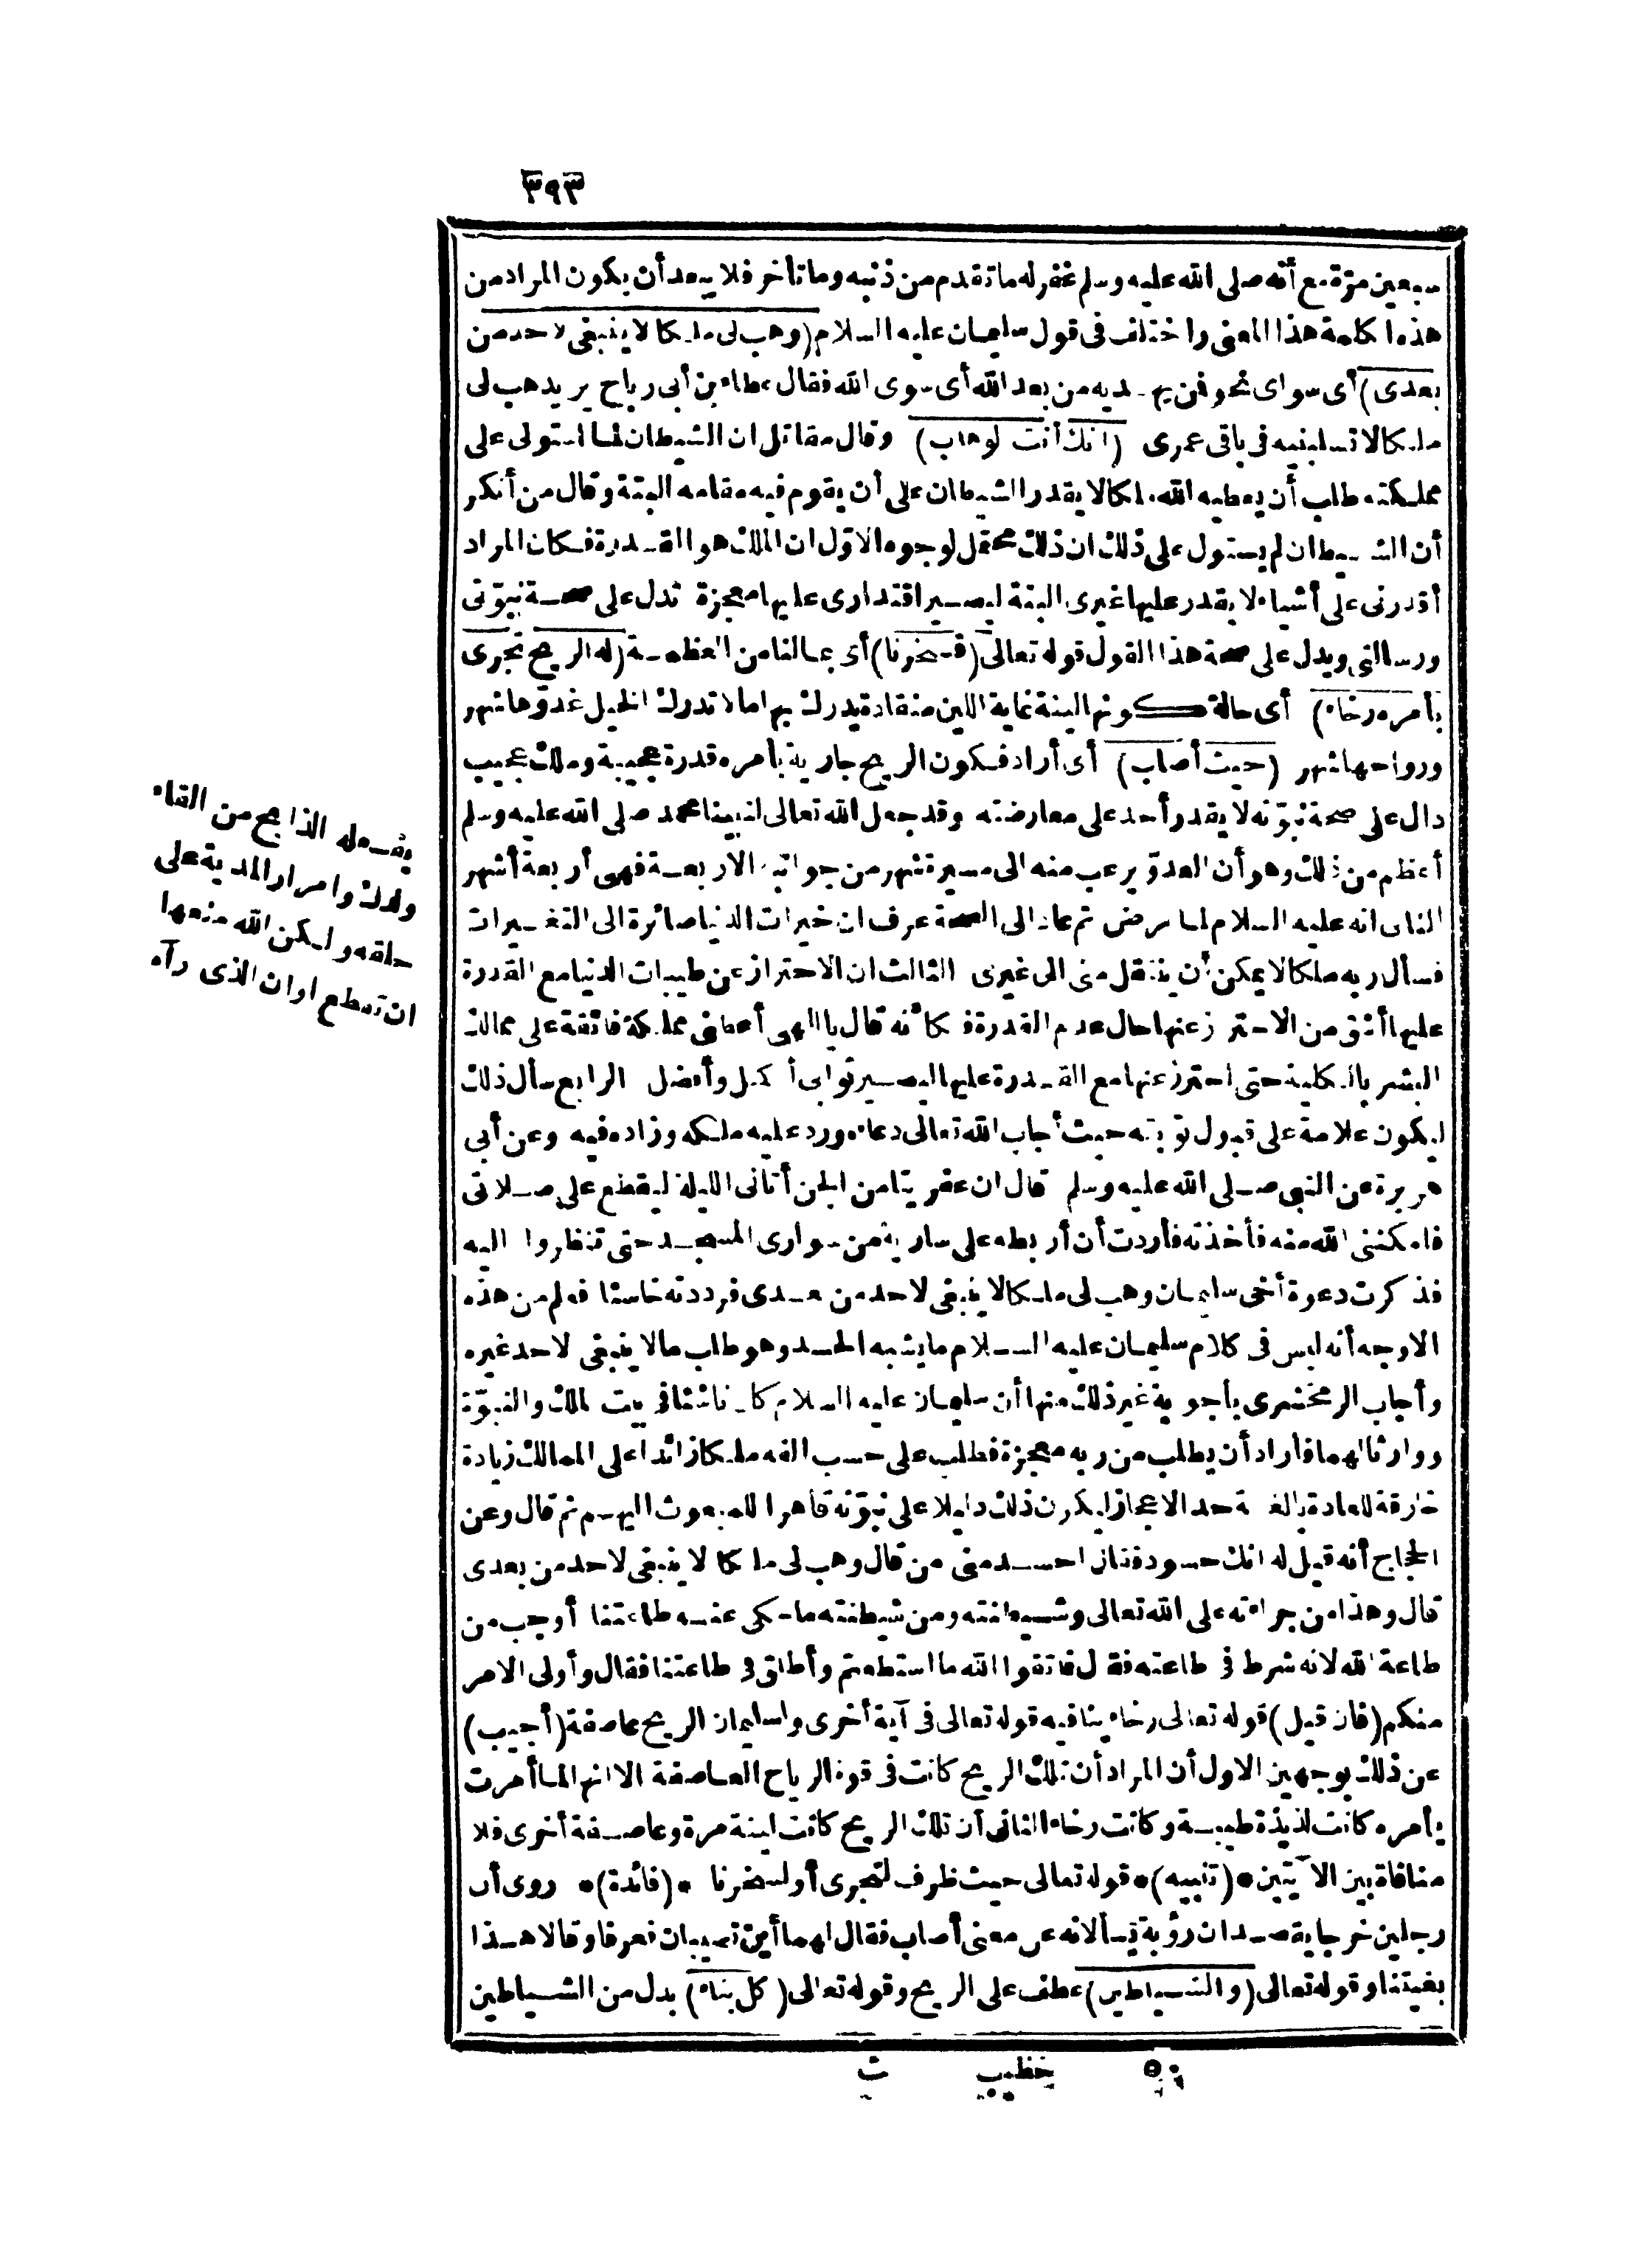 ٣٩٣
سبعين مرّة مع أنه صلى الله عليه وسلم غفر له ما تقدم من ذنبه وما تأخر فلا يبعد أن يكون المراد من
هذه الكلمة هذا المعنى واختلف فى قول سليمان عليه السلام (وهب لى ملكا لا ينبغى لاحد من
بعدى) أى سواى نحو فمن يهديه من بعد الله أى سوى الله فقال عطاء بن أبى رباح يريد هب لى
ملكا لا تسلبنيه فى باقى عمرى (انك أنت لوهاب) وقال مقاتل ان الشيطان لما استولى على
مملكته طلب أن يعطيه الله ملكا لا يقدر الشيطان على أن يقوم فيه مقامه البتة وقال من أنكر
أن الشيطان لم يستول على ذلك ان ذلك محتمل لوجوه الاوّل ان الملك هو القدرة فكان المراد
أقدرنى على أشياء لا يقدر عليها غيرى البتة ليصير اقتدارى عليها معجزة تدل على صحة نبوّتى
ورسالتى ويدل على صحة هذا القول قوله تعالى (فسخرنا) أى بمالنا من العظمة (له الريح تجرى
بأمره رخاء) أى حالة كونها لينة غاية اللين منقادة يدرك بها ما لا تدرك الخيل غدوّها شهر
ورواحها شهر (حيث أصاب) أى أراد فكون الريح جارية بأمره قدرة عجيبة وملك عجيب
دال على صحة نبوّته لا يقدر أحد على معارضته وقد جعل الله تعالى لنبينا محمد صلى الله عليه وسلم
أعظم من ذلك وهو أن العدوّ يرعب منه الى مسيرة شهر من جوانبه الاربعة فهى أربعة أشهر
الثانى انه عليه السلام لما مرض ثم عاد الى الصحة عرف ان خيرات الدنيا صائرة الى التغيرات
فسأل ربه ملكا لا يمكن أن ينتقل منى الى غيرى الثالث ان الاحتراز عن طيبات الدنيا مع القدرة
عليها أشق من الاحتراز عنها حال عدم القدرة فكأنه قال يا الهى أعطنى مملكة فائقة على ممالك
البشر بالكلية حتى احترز عنها مع القدرة عليها ليصير ثوابى أكمل وأفضل الرابع سأل ذلك
ليكون علامة على قبول توبته حيث أجاب الله تعالى دعاءه ورد عليه ملكه وزاده فيه وعن أبى
هريرة عن النبى صلى الله عليه وسلم قال ان عفريتا من الجن أتانى الليلة ليقطع على صلاتى
فامكننى الله منه فأخذته فأردت أن أربطه على سارية من سوارى المسجد حتى تنظروا اليه
فذكرت دعوة أخى سليمان وهب لى ملكا لا ينبغى لاحد من بعدى فرددته خاسئا فعلم من هذه
الاوجه أنه ليس فى كلام سليمان عليه السلام ما يشبه الحسد وهو طلب ما لا ينبغى لاحد غيره
وأجاب الزمخشرى بأجوبة غير ذلك منها أن سليمان عليه السلام كان ناشئا فى بيت الملك والنبوّة
ووارثا لهما فأراد أن يطلب من ربه معجزة فطلب على حسب الفه ملكا زائدا على الممالك زيادة
خارقة للعادة بالغة حد الاعجاز ليكون ذلك دليلا على نبوّته قاهرا للمبعوث اليهم ثم قال وعن
الحجاج أنه قيل له انك حسود فقال احسد منى من قال وهب لى ملكا لا ينبغى لاحد من بعدى
قال وهذا من جراءته على الله تعالى وشيطنته ومن شيطنته ما حكى عنه طاعتنا أوجب من
طاعة الله لانه شرط فى طاعته فقال فاتقوا الله ما استطعتم وأطلق فى طاعتنا فقال وأولى الامر
منكم (فان قيل) قوله تعالى رخاء ينافيه قوله تعالى فى آية أخرى ولسليمان الريح عاصفة (أجيب)
عن ذلك بوجهين الاول أن المراد أن تلك الريح كانت فى قوة الرياح العاصفة الا انها لما أمرت
بأمره كانت لذيذة طيبة وكانت رخاء الثانى أن تلك الريح كانت لينة مرة وعاصفة أخرى فلا
منافاة بين الآيتين • (تنبيه) • قوله تعالى حيث ظرف لتجرى أو لسخرنا • (فائدة) • روى أن
رجلين خرجا يقصدان رؤبة يسألانه عن معنى أصاب فقال لهما أين تصيبان فعرفا وقالا هذا
بغيتنا وقوله تعالى (والشياطين) عطف على الريح وقوله تعالى (كل بناء) بدل من الشياطين
يفعله الذابح من القاء
ولدك وامرار المدية على
حلقه ولكن الله منعها
ان تقطع او ان الذى رآه
٥٠ خطيب ث